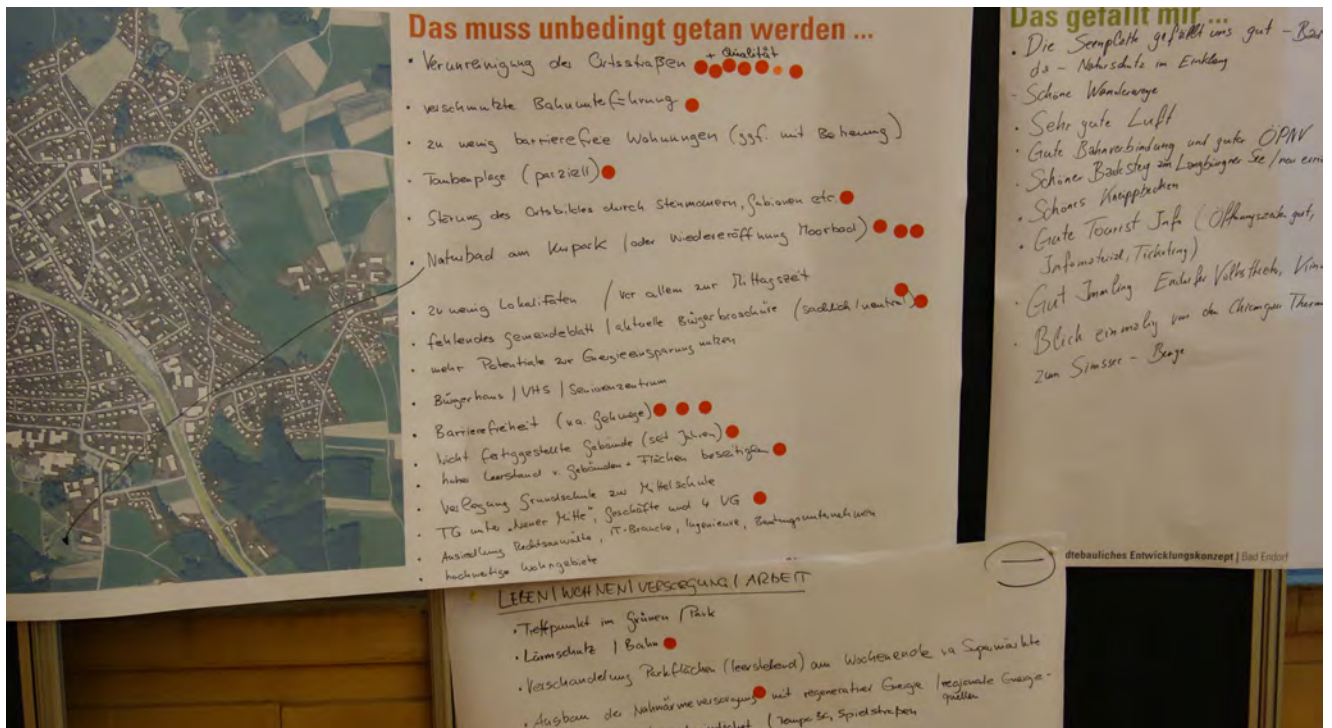 Das muss unbedingt getan werden ...
+ Qualität
• Verunreinigung der Ortsstraßen
• verschmutzte Bahnunterführung
• zu wenig barrierefreie Wohnungen (ggf. mit Betreuung)
• Taubenplage (parziell)
• Störung des Ortsbildes durch Steinmauern, Gabionen etc.
• Naturbad am Kurpark (oder Wiedereröffnung Moorbad)
• zu wenig Lokalitäten / vor allem zur Mittagszeit
• fehlendes Gemeindeblatt / aktuelle Bürgerbroschüre (sachlich / neutral)
• mehr Potentiale zur Energieeinsparung nutzen
• Bürgerhaus / VHS / Seniorenzentrum
• Barrierefreiheit (va. Gehwege)
• nicht fertiggestellte Gebäude (seit Jahren)
• hoher Leerstand v. Gebäuden + Flächen beseitigen
• Verlegung Grundschule zur Mittelschule
• TG unter "Neuer Mitte", Geschäfte und 4 VG
• Ansiedlung Rechtsanwälte, IT-Branche, Ingenieure, Beratungsunternehmen
• hochwertige Wohngebiete
Das gefällt mir ...
• Die Seenplatte gefällt uns gut – Bad
– Naturschutz im Einklang
– Schöne Wanderwege
• Sehr gute Luft
• Gute Bahnverbindung und guter ÖPNV
• Schöner Badesteg am Langbürgner See / neu
• Schönes Kneippbecken
• Gute Tourist Info (Öffnungszeiten gut,
Infomaterial, Ticketing)
• Gut Immling Endorfer Volkstheater, Kino
• Blick einmalig von den Chiemgau Thermen
zum Simssee – Berge
dtebauliches Entwicklungskonzept | Bad Endorf
LEBEN / WOHNEN / VERSORGUNG / ARBEIT
• Treffpunkt im Grünen / Park
• Lärmschutz / Bahn
• Verschandelung Parkflächen (leerstehend) am Wochenende va Supermärkte
• Ausbau der Nahwärmeversorgung mit regenerativer Energie / regionale Energie-
quellen
(Tempo 30, Spielstraßen